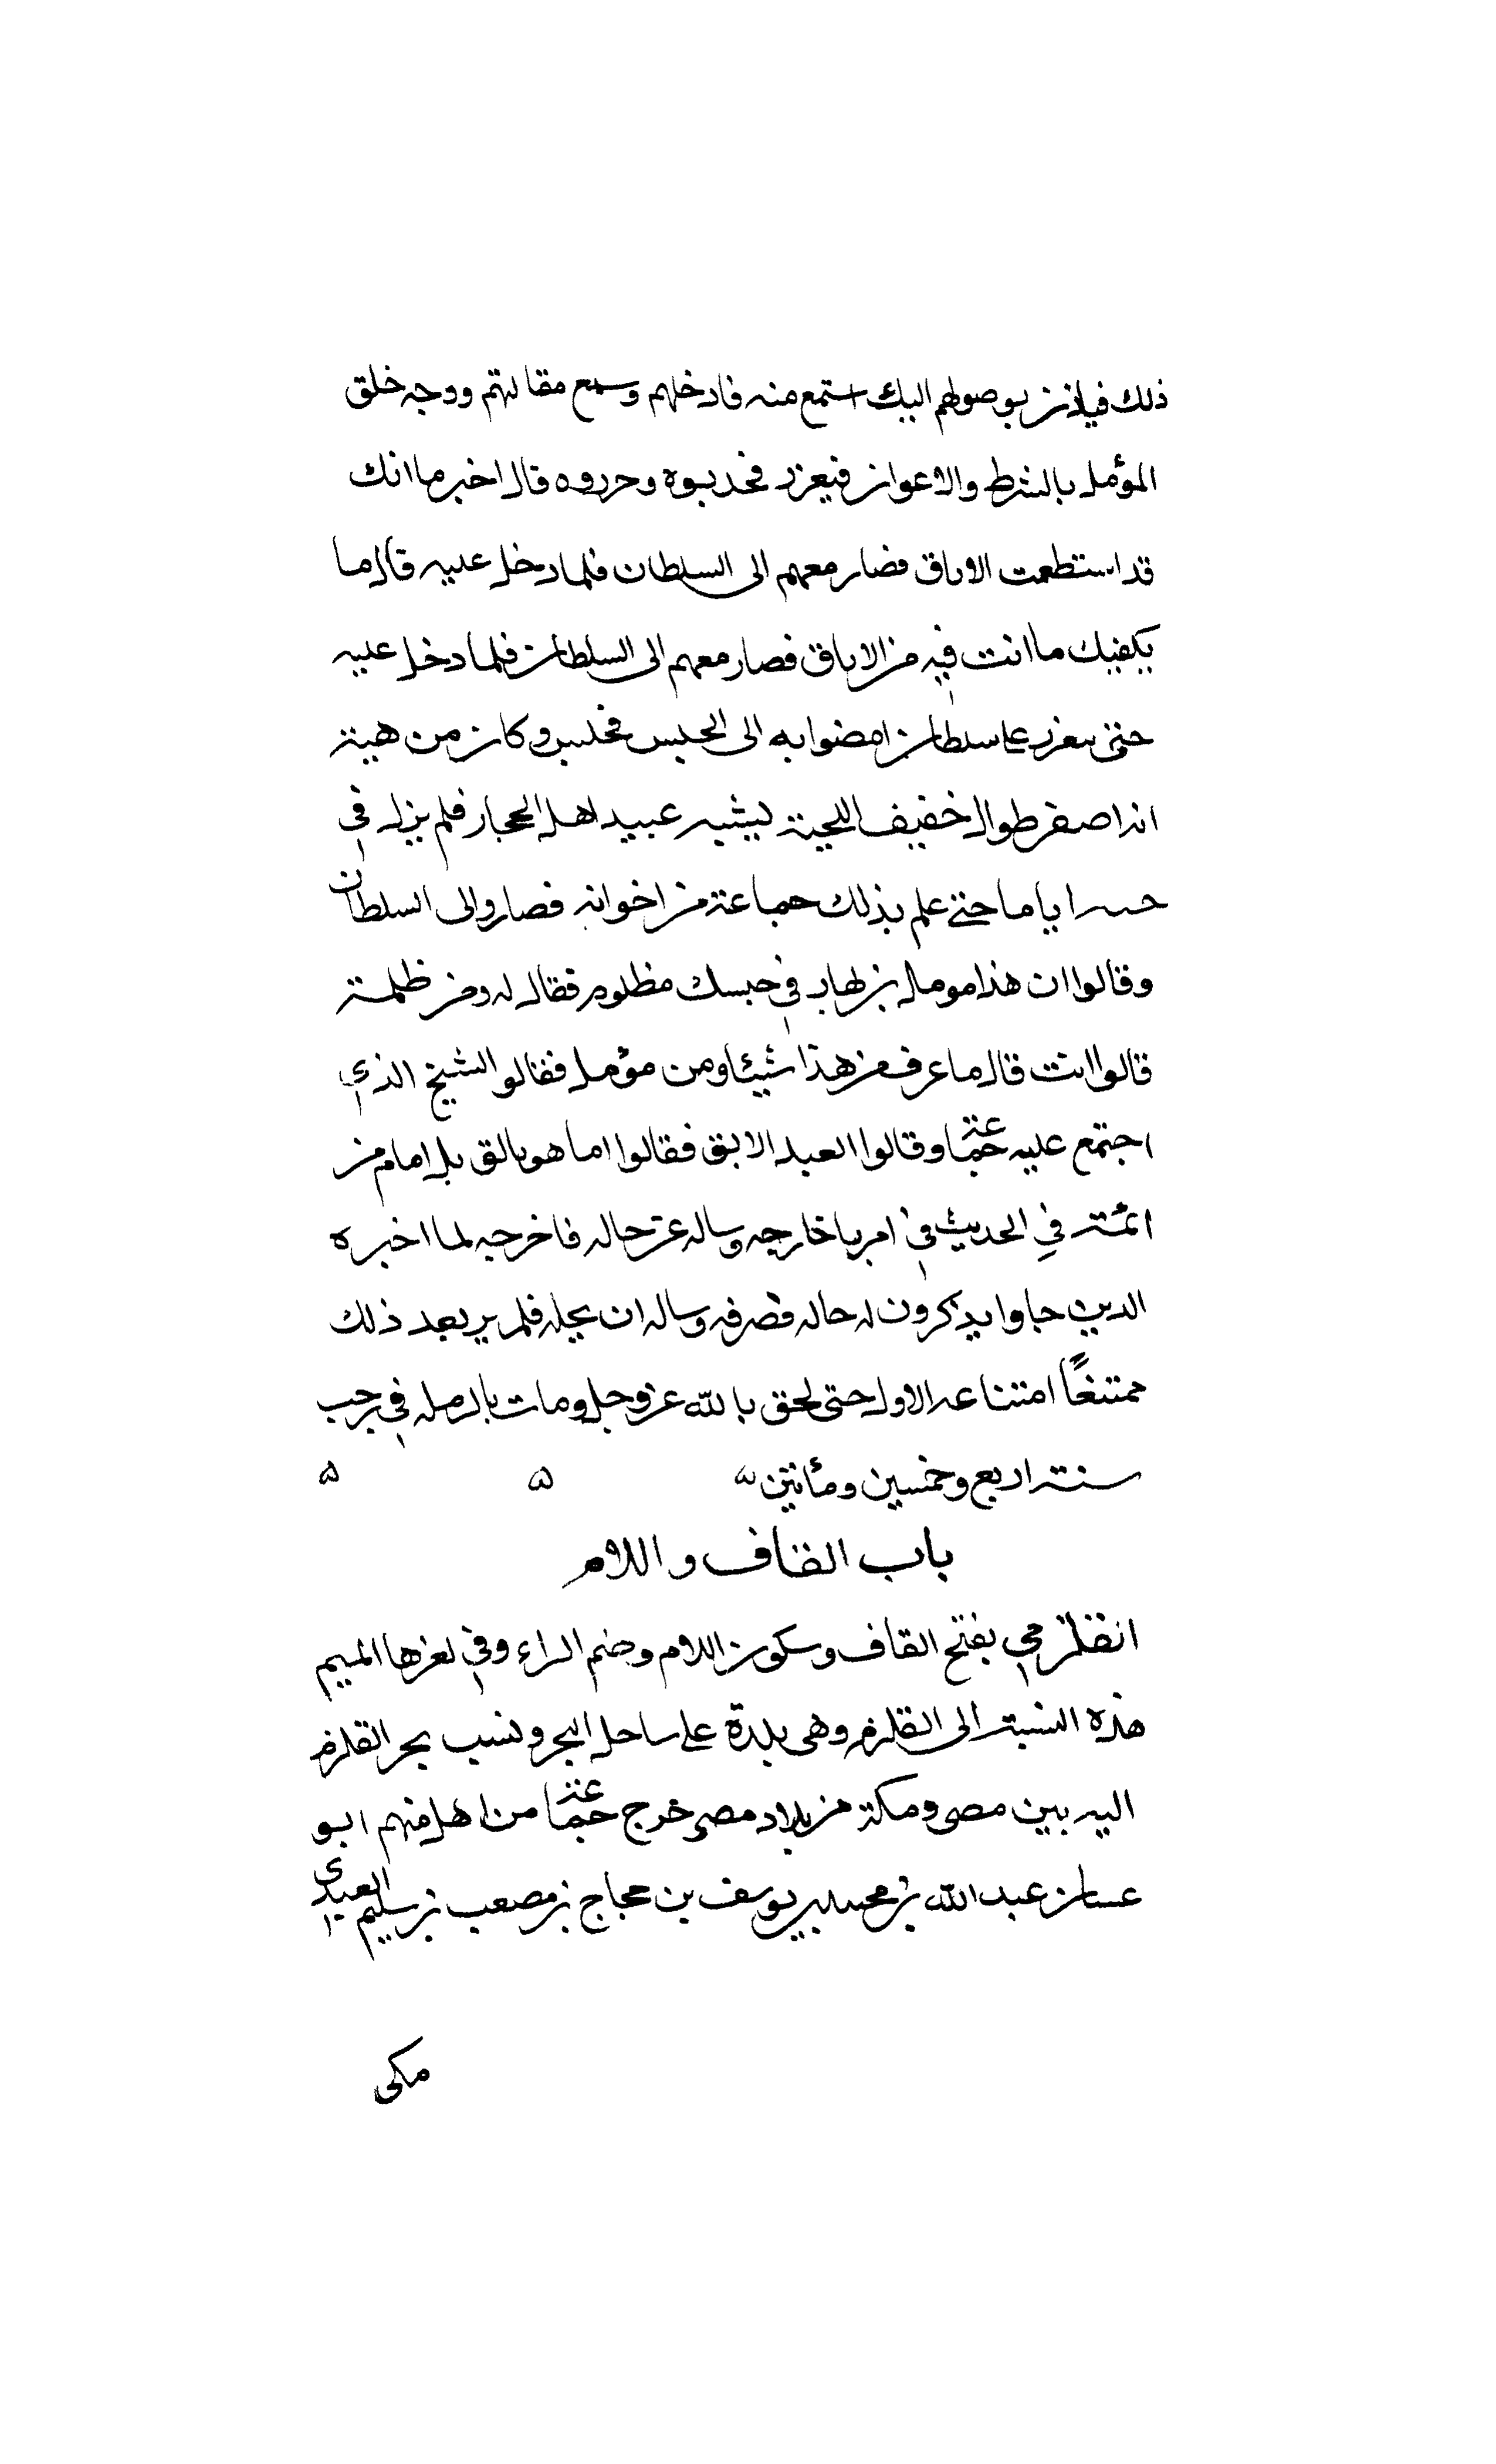 ذلك فياذن بوصولهم اليك استمع منه فادخلهم وسمع مقالتهم ووجه خلق
المؤمل بالشرط والاعوان فيعزر فخدبوه وحرروه قال اخبرما انك
قد استطعمت الاباق فصار معهم الى السلطان فلما دخل عليه قال ما
يكفيك ما انت فيه من الاباق فصار معهم الى السلطان فلما دخل عليه
حتى تعزر على سلطان امضوا به الى الحبس فحبس وكان من هيئة
انه اصفر طوال خفيف اللحية يشبه عبيد اهل الحجاز فلم يزل في
حبسه اياما حتى علم بذلك جماعة من اخوانه فصاروا الى السلطان
وقالوا ان هذا مومل بن اهاب في حبسك مظلوم فقال له ومن ظلمة
قالوا انت قال ما عرف من هذا شيئا ومن مؤمل فقالوا الشيخ الذي
اجتمع عليه جماعة وقالوا العبد الابق فقالوا اما هو بالق بل امام من
ائمة في الحديث في امر باخارجه وساله عن حاله فاخرجه لما اخبره
الدين جاوا يذكرون له حاله فصرفه وساله ان يحله فلم ير بعد ذلك
ممتنعًا امتناعه الاول حتى لحق بالله عز وجل ومات بالرمله في رجب
سنة اربع وخمسين ومأتين ۵ ۵ ۵
باب القاف واللام
القلزمي بفتح القاف وسكون اللام وضم الراء وفي اخرها الميم
هذه النسبة الى القلزم وهى بلدة على ساحل البحر ونسب بحر القلزم
اليه بين مصر ومكة من بلاد مصر خرج جماعة من اهل منهم ابو
غسان عبد الله بن محمد بن يوسف بن حجاج بن مصعب بن سليم العبدي
مكى